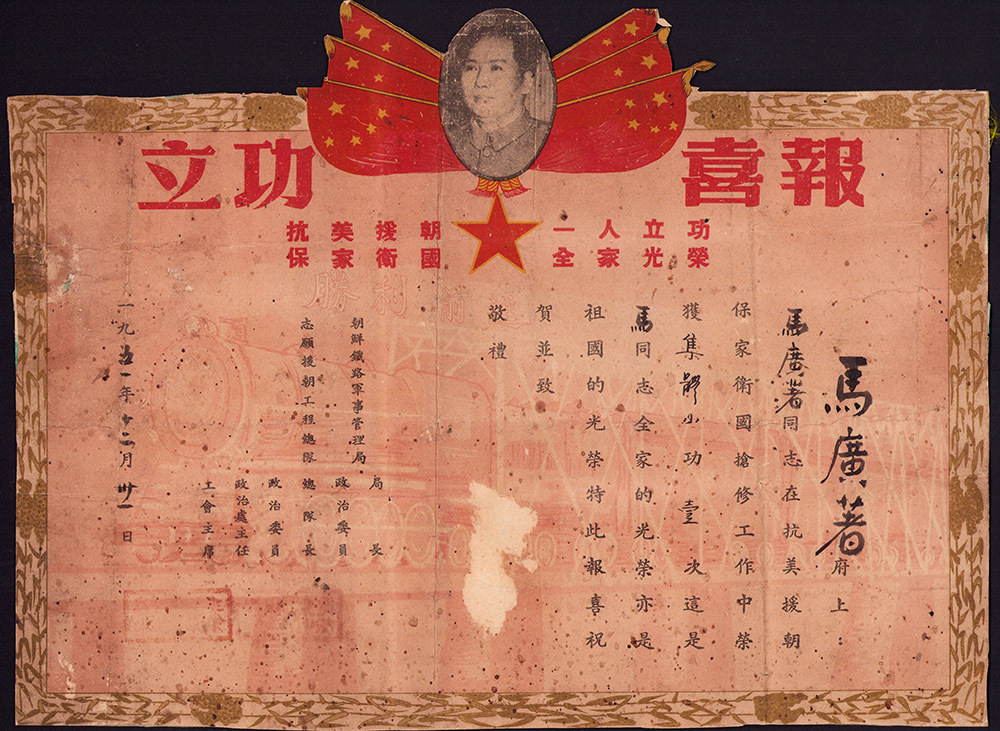 立功 喜報
抗美援朝 一人立功
保家衛國 全家光榮
勝利前進
馬廣著府上:
馬廣著同志在抗美援朝
保家衛國搶修工作中榮
獲集體小功壹次這是
馬同志全家的光榮亦是
祖國的光榮特此報喜祝
賀並致
敬禮
朝鮮鐵路軍事管理局 局長
政治委員
志願援朝工程總隊 總隊長
政治委員
政治處主任
工會主席
一九五一年十二月卅一日